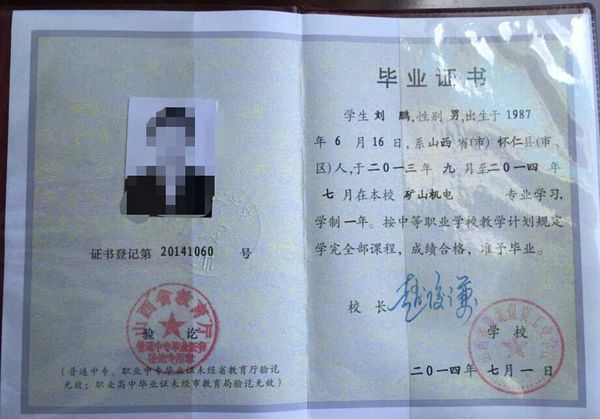 证书登记第 20141060 号
山西省教育厅
验讫
普通中专毕业证书
验讫专用章
(普通中专、职业中专毕业证未经省教育厅验讫
无效;职业高中毕业证未经市教育局验讫无效)
毕业证书
学生 刘 鹏,性别 男,出生于 1987
年 6 月 16 日,系山西 省(市) 怀仁县(市、
区)人,于二○一三年 九 月至二○一四年
七 月在本校 矿山机电 专业学习,
学制 一 年。按中等职业学校教学计划规定
学完全部课程,成绩合格,准予毕业。
校 长
学 校
二○一四年 七 月 一 日